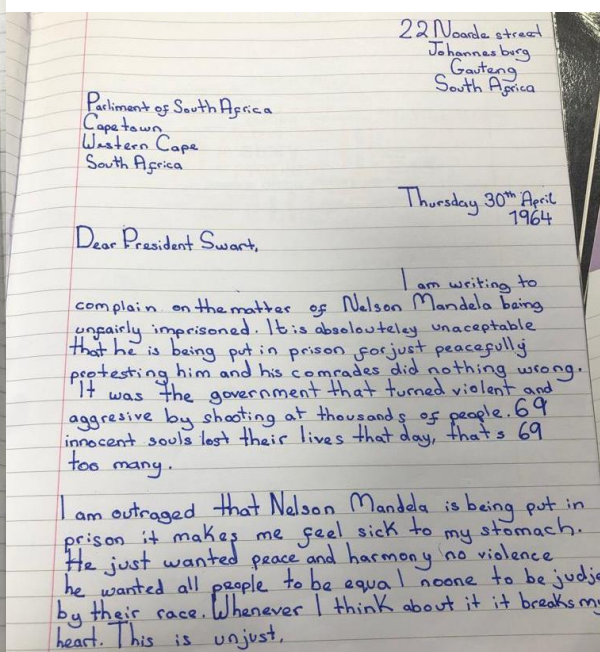 22 Noarde street
Johannesburg
Gauteng
South Africa
Parliment of South Africa
Cape town
Western Cape
South Africa
Thursday 30th April
1964
Dear President Swart,
I am writing to
complain on the matter of Nelson Mandela being
unfairly imprisoned. It is absolouteley unaceptable
that he is being put in prison for just peacefully
protesting him and his comrades did nothing wrong.
It was the government that turned violent and
aggresive by shooting at thousands of people. 69
innocent souls lost their lives that day, that's 69
too many.
I am outraged that Nelson Mandela is being put in
prison it makes me feel sick to my stomach.
He just wanted peace and harmony no violence
he wanted all people to be equal noone to be judje
by their race. Whenever I think about it it breaks my
heart. This is unjust.